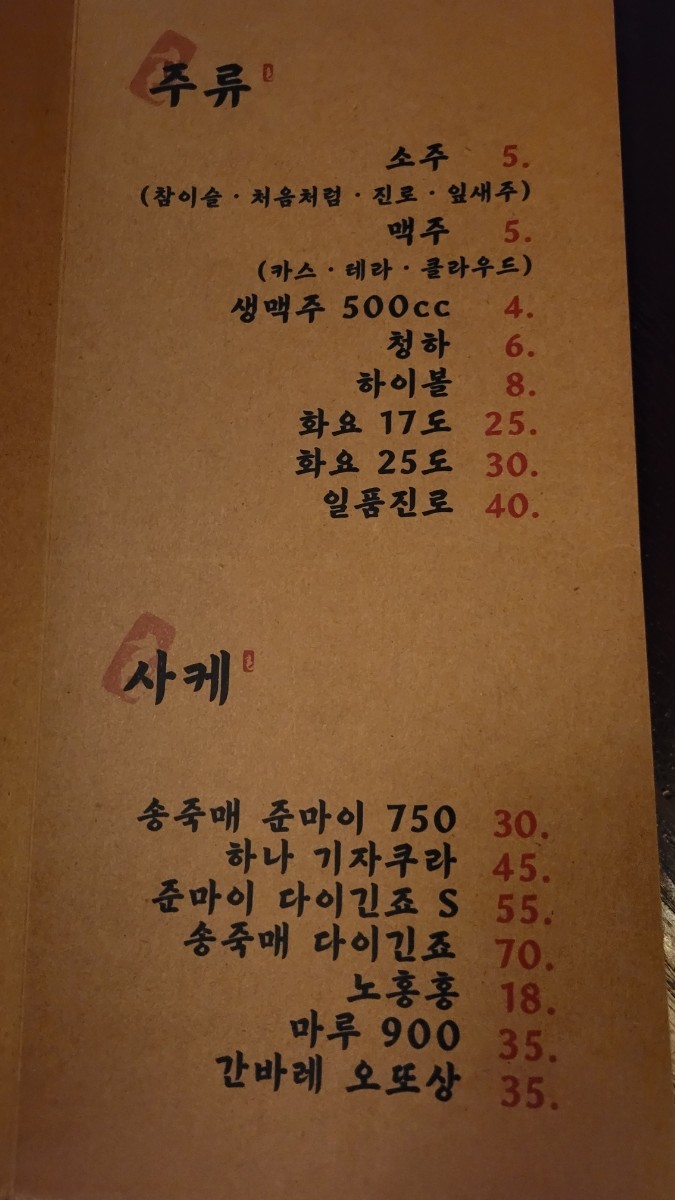 주류
소주 5.
(참이슬 · 처음처럼 · 진로 · 잎새주)
맥주 5.
(카스 · 테라 · 클라우드)
생맥주 500cc 4.
청하 6.
하이볼 8.
화요 17도 25.
화요 25도 30.
일품진로 40.
사케
송죽매 준마이 750 30.
하나 기자쿠라 45.
준마이 다이긴죠 S 55.
송죽매 다이긴죠 70.
노홍홍 18.
마루 900 35.
간바레 오또상 35.